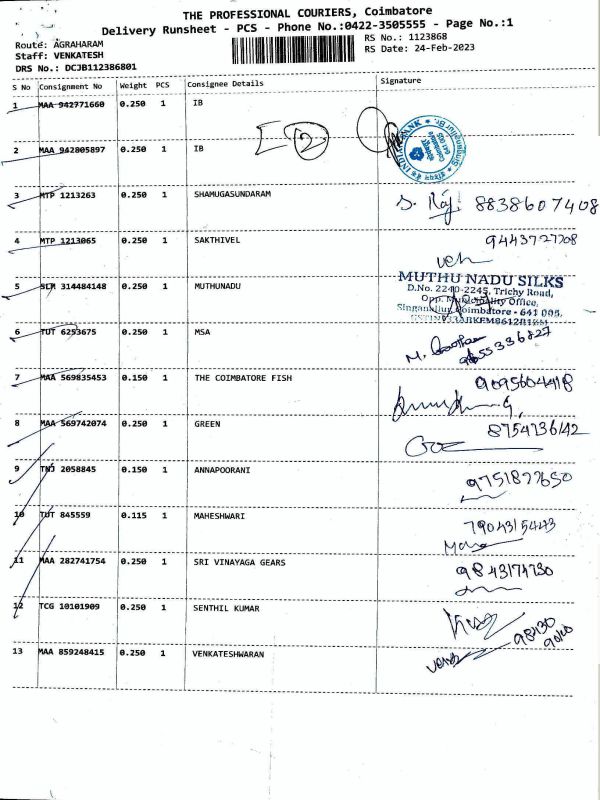 THE PROFESSIONAL COURIERS, Coimbatore
Delivery Runsheet - PCS - Phone No.:0422-3505555 - Page No.:1
Route: AGRAHARAM
Staff: VENKATESH
DRS No.: DCJB112386801
RS No.: 1123868
RS Date: 24-Feb-2023
S No Consignment No Weight PCS Consignee Details Signature
1 MAA 942771660 0.250 1 IB
2 MAA 942805897 0.250 1 IB
2
3 MTP 1213263 0.250 1 SHAMUGASUNDARAM S. Raj 8838607408
4 MTP 1213065 0.250 1 SAKTHIVEL 9443727708
5 SLM 314484148 0.250 1 MUTHUNADU
MUTHU NADU SILKS
D.No. 2240-2245, Trichy Road,
Opp. Municipality Office,
Singanallur, Coimbatore - 641 005.
6 TUT 6253675 0.250 1 MSA 9655336827
7 MAA 569835453 0.150 1 THE COIMBATORE FISH 9095604418
8 MAA 569742074 0.250 1 GREEN 8754736142
9 TNJ 2058845 0.150 1 ANNAPOORANI 9751877650
10 TUT 845559 0.115 1 MAHESHWARI 7904315443
11 MAA 282741754 0.250 1 SRI VINAYAGA GEARS 9843174730
12 TCG 10101909 0.250 1 SENTHIL KUMAR
13 MAA 859248415 0.250 1 VENKATESHWARAN